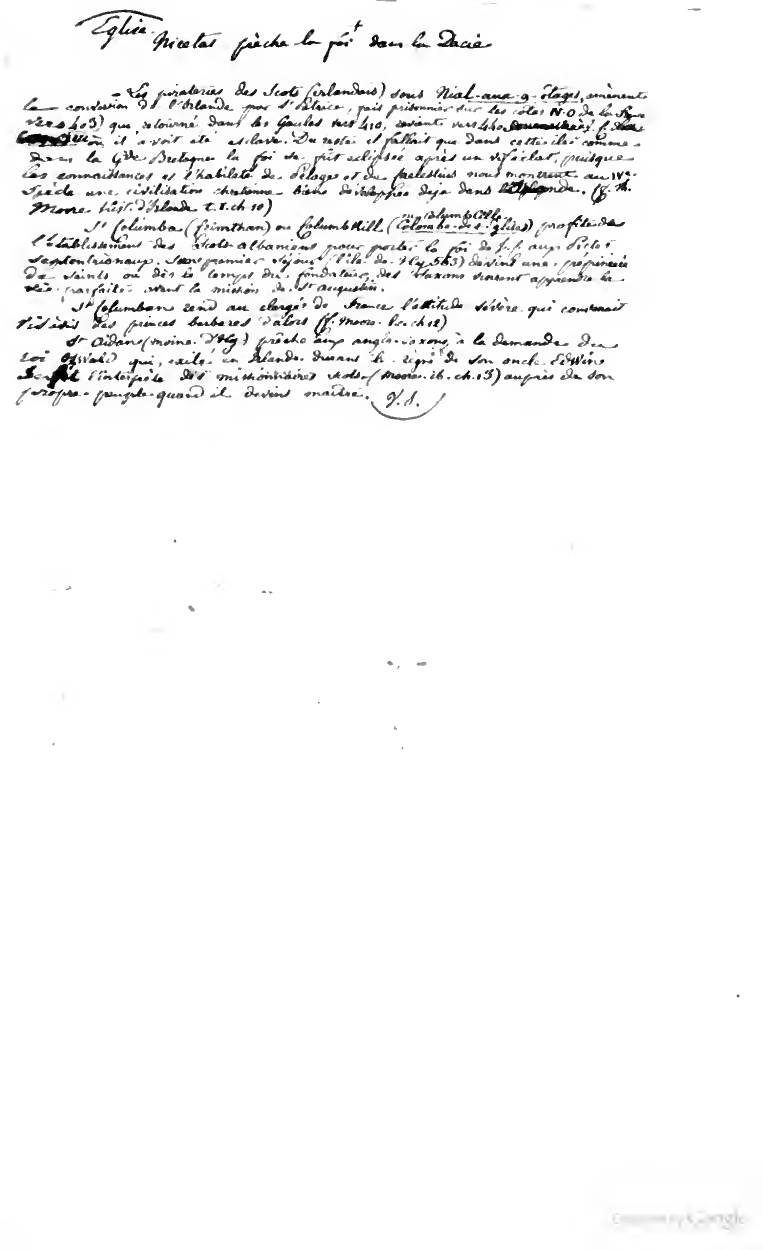 Église.
Nicetas prêche la foi dans la Dacie
– Les pirateries des Scots (irlandais) sous Nial-aux-9-ôtages, amènent
la conversion de l'Irlande par St Patrice, fait prisonnier sur les côtes N-O de la
vers 403) qui, retourné dans les Gaules vers 410, revint vers 440
il avoit été esclave. Du reste il falloit que dans cette île comme
dans la Gde Bretagne la foi se fût eclipsée après un vif éclat, puisque
les connaissances et l'habileté de Pélage et du Celestius nous montrent au IVe
siècle une civilisation chretienne bien développée deja dans (cf. Th.
Moore hist. d'Irlande t. I. ch. 10)
St Columba (Crimthan) ou ColumbKill (ou Columbcille
Colombe-des-Églises) profite de
l'établissement des Scots-albaniens pour porter la foi de J.C. aux Pictes
septentrionaux. Son premier séjour (l'île de Hy, 563) devint une pépinière
de saints où dès le temps du fondateur, des Saxons vinrent apprendre la
vie parfaite avant la mission de St Augustin.
St Columban rend au clergé de France l'attitude sévère qui convenait
vis à vis des princes barbares d'alors (cf. Moore. l. c. ch 12)
St Aidan (moine d'Hy) prêche aux anglo-saxons, à la demande du
roi Oswald qui, exilé en Irlande durant le règne de son oncle Edwin,
se fit l'interprète des missionnaires scots (Moore. ib. ch. 13) auprès de son
propre peuple quand il devint maître. V. S.